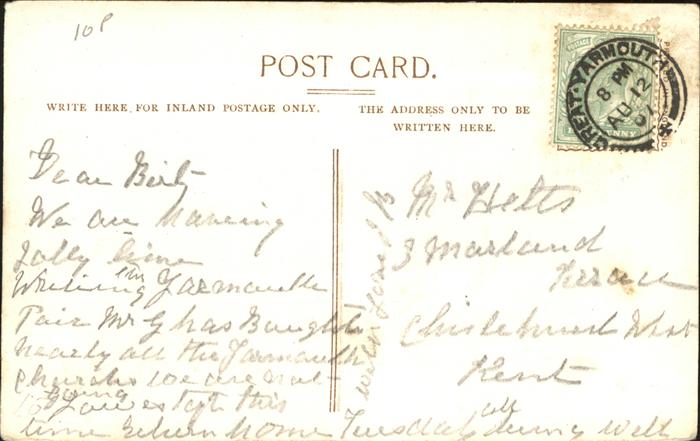 10P
POST CARD.
WRITE HERE FOR INLAND POSTAGE ONLY.
THE ADDRESS ONLY TO BE
WRITTEN HERE.
GREAT YARMOUTH
8 PM
AU 12
07
Dear Bert
We are having
Jolly time
this Yarmouth
Mr G has Bought
nearly all the Yarmouth
we are not
going
to Lowestoft this
time return home Tuesday all well
with love
Mr Helts
3 Marland
Terrace
Chislehurst West
Kent